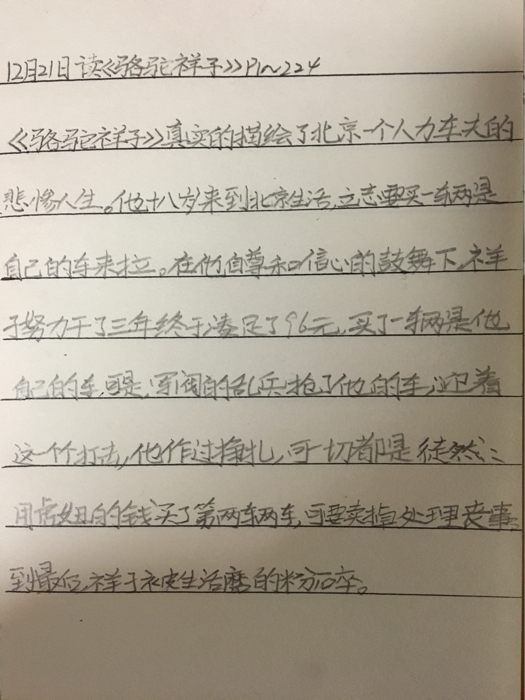 12月21日读《骆驼祥子》P1~224
《骆驼祥子》真实的描绘了北京一个人力车夫的
悲惨人生。他十八岁来到北京生活,立志要买一辆是
自己的车来拉。在他自尊和信心的鼓舞下,祥
子努力干了三年终于凑足了96元,买了一辆是他
自己的车,可是,军阀的乱兵抢了他的车,迎着
这一个打击,他作过挣扎,可一切都是徒然:
用虎妞的钱买了第两车辆车,可要卖掉处理丧事,
到最后,祥子被生活磨的粉碎。